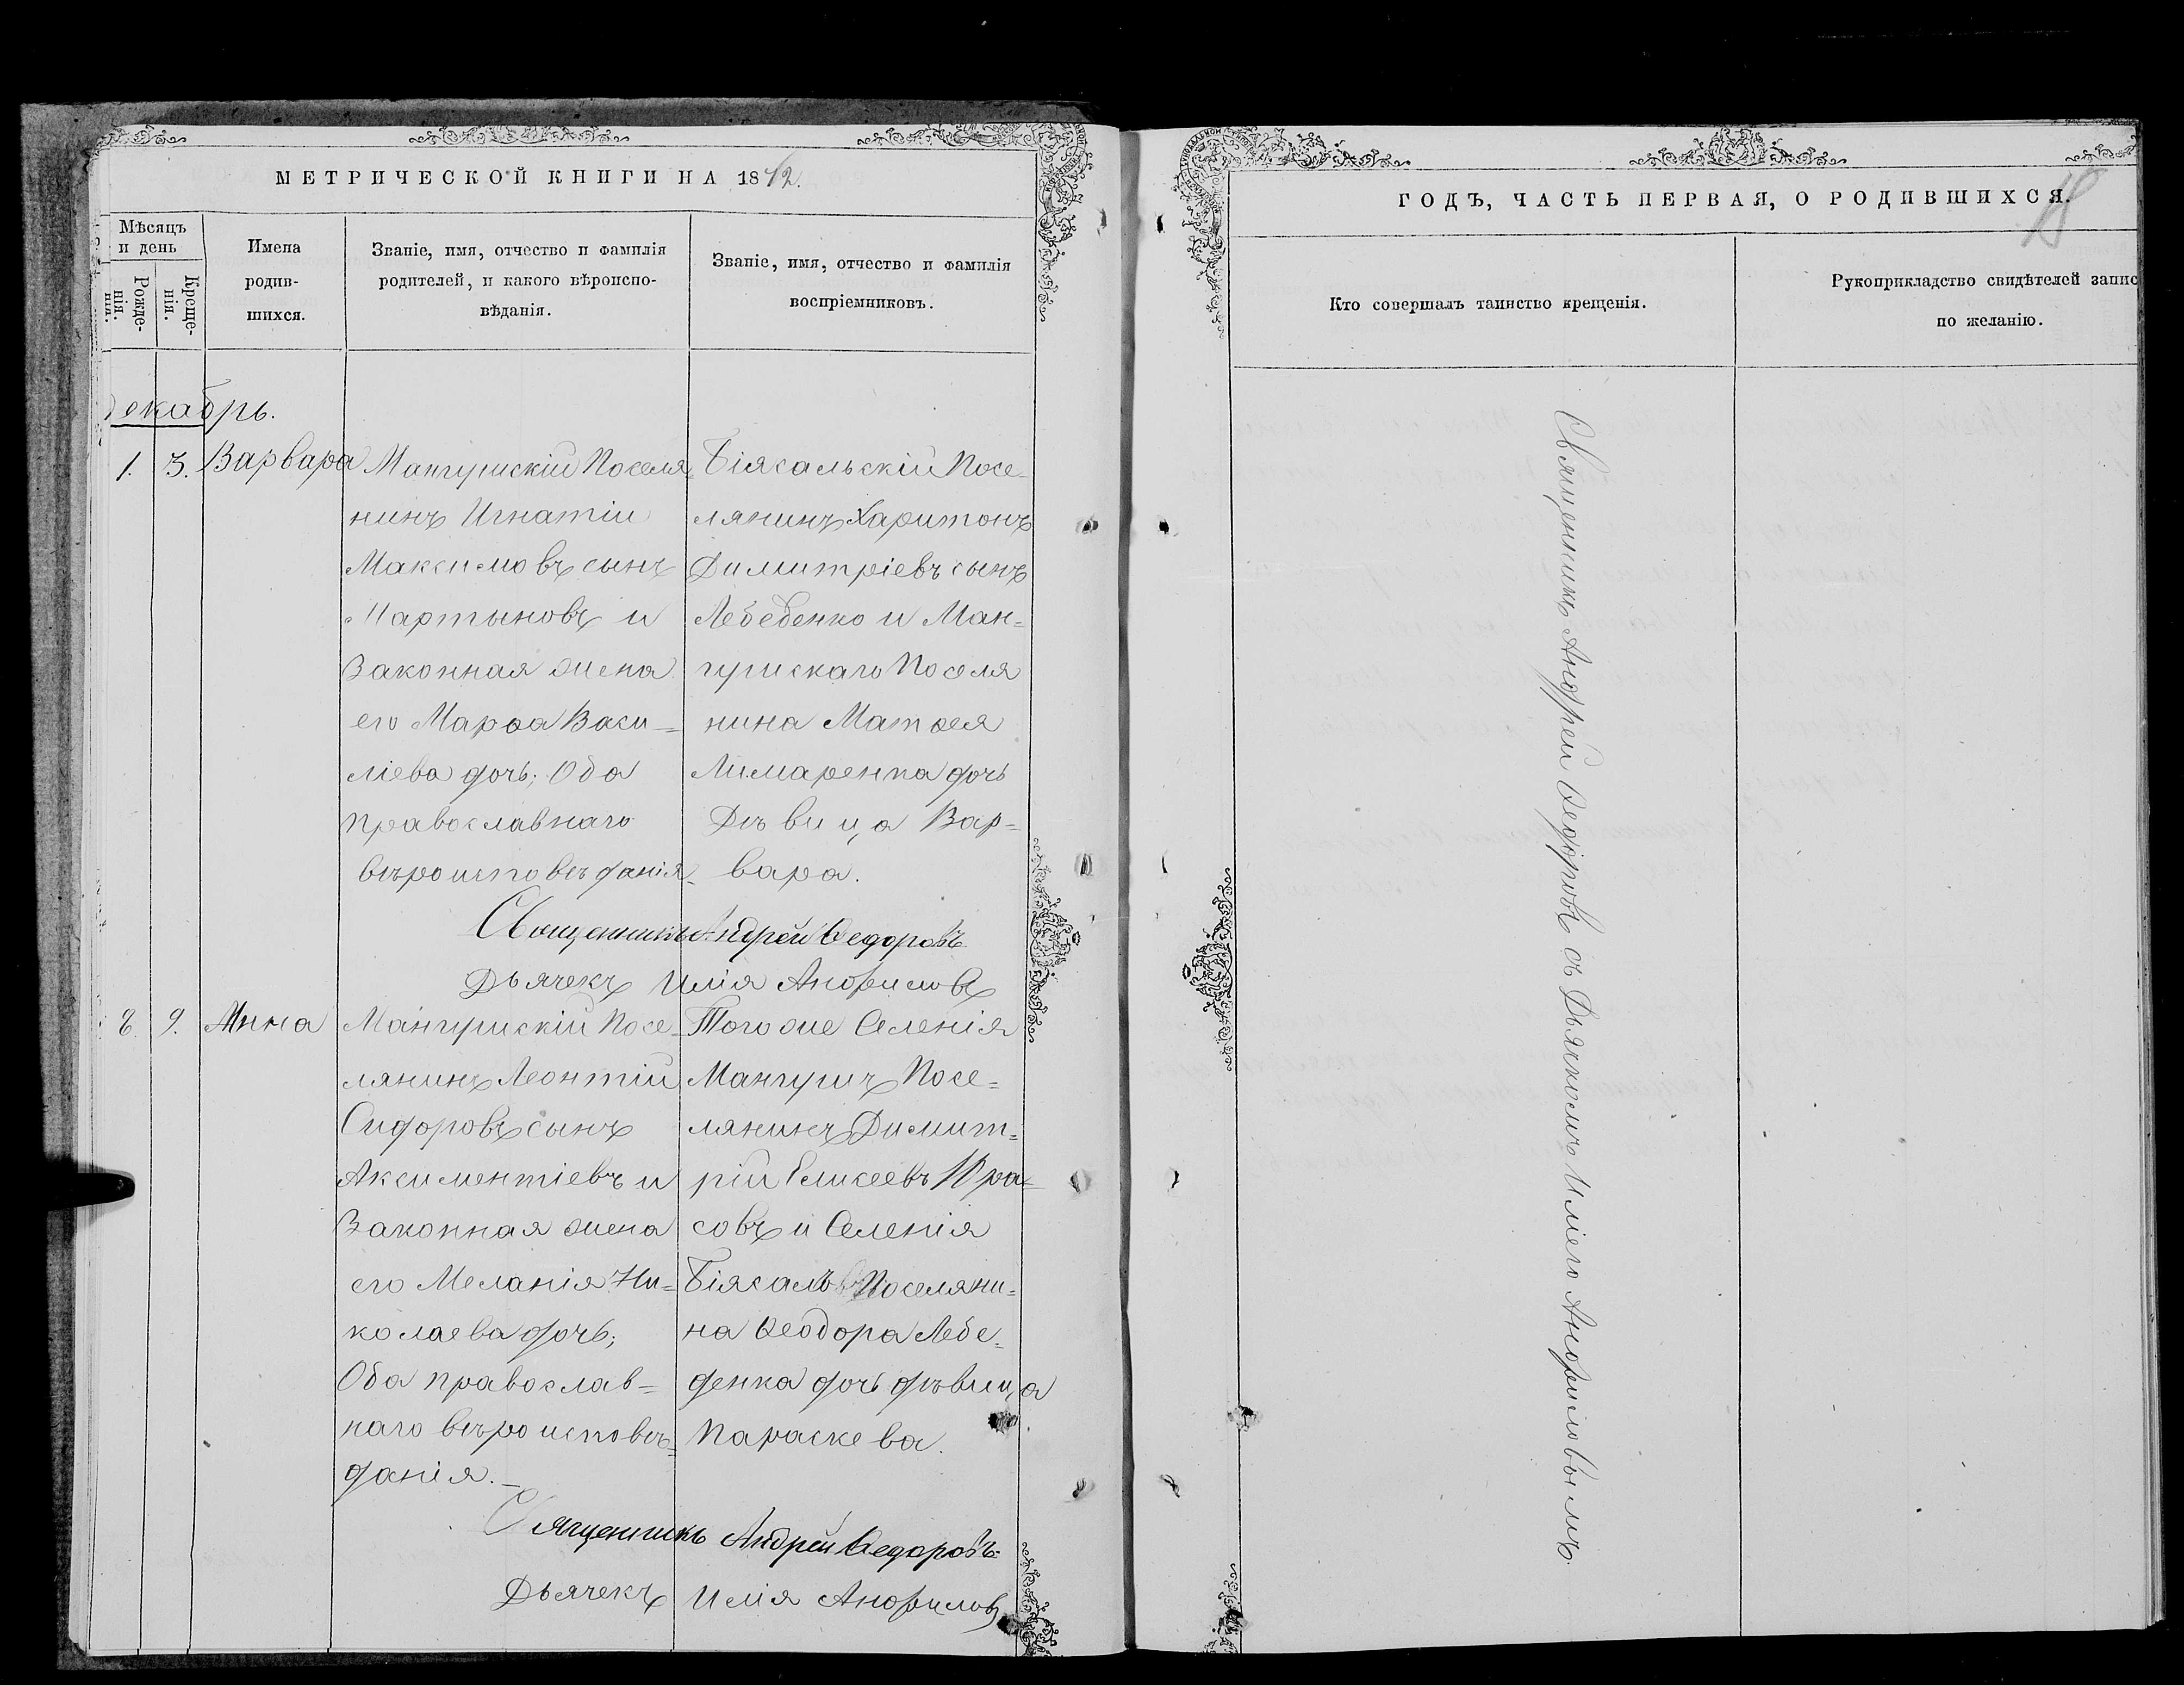 МЕТРИЧЕСКОЙ КНИГИ НА 1842.
Мѣсяцъ
и день
Рожде-
нія.
Креще-
нія.
Имена
родив-
шихся.
Званіе, имя, отчество и фамилія
родителей, и какого вѣроиспо-
вѣданія.
Званіе, имя, отчество и фамилія
воспріемниковъ.
Декабрь.
1. 3. Варвара
Мангушскій Поселя
нинъ Игнатій
Максимовъ сынъ
Мартыновъ и
Законная жена
его Марѳа Васи=
ліева дочь; Оба
Православнаго
вѣроисповѣданія
Біясальскій Посе-
лянинъ Харитонъ
Димитріевъ сынъ
Лебеденко и Ман=
гушскаго Поселя
нина Матѳея
Лимаренка дочь
Дѣвица Вар=
вара.
Священникъ Андрей Ѳедоровъ
Дьячекъ Илія Анфимовъ
8. 9. Анна
Мангушскій Посе-
лянинъ Леонтій
Сидоровъ сынъ
Аксиментіевъ и
Законная жена
его Меланія Ни=
колаева дочь;
Оба православ=
наго вѣроисповѣ=
данія.
Того же Селенія
Мангушъ Посе=
лянинъ Димит=
рій Елисеевъ
совъ и Селенія
Біясалъ Поселяни=
на Ѳеодора Лебе-
денка дочь дѣвица
Параскева.
Священникъ Андрей Ѳедоровъ
Дьячекъ Илія Анфимовъ
ГОДЪ, ЧАСТЬ ПЕРВАЯ, О РОДИВШИХСЯ.
18
Кто совершалъ таинство крещенія.
Рукоприкладство свидѣтелей запис
по желанію.
Священникъ Андрей Ѳедоровъ съ Дьячкомъ Иліею Анфимовымъ.